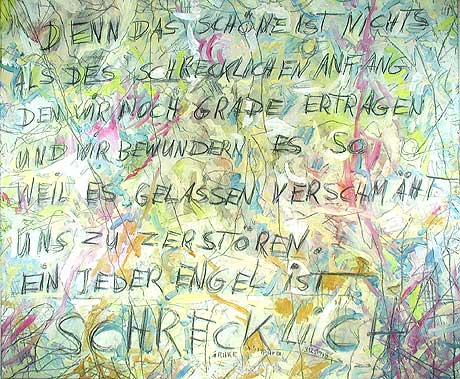 DENN DAS SCHÖNE IST NICHTS
ALS DES SCHRECKLICHEN ANFANG,
DEN WIR NOCH GRADE ERTRAGEN
UND WIR BEWUNDERN ES SO
WEIL ES GELASSEN VERSCHMÄHT
UNS ZU ZERSTÖREN.
EIN JEDER ENGEL IST
SCHRECKLICH